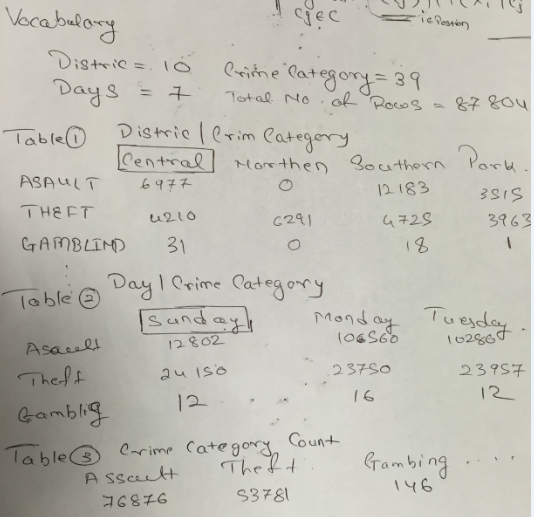 cjec
Vocabulary
Distric = 10 Crime Category = 39
Days = 7 Total No. of Rows = 87804
Table ① Distric | Crim Category
Central Northen Southern Park.
ASAULT 6977 0 12183 3515
THEFT 4210 6291 4725 3963
GAMBLIND 31 0 18 1
Table ② Day | Crime Category
Sunday Monday Tuesday.
Asault 12802 106560 10280
Theft 24150 23750 23957
Gamblig 12 16 12
Table ③ Crime Category Count
Assault Theft Gambing ....
76876 53781 146